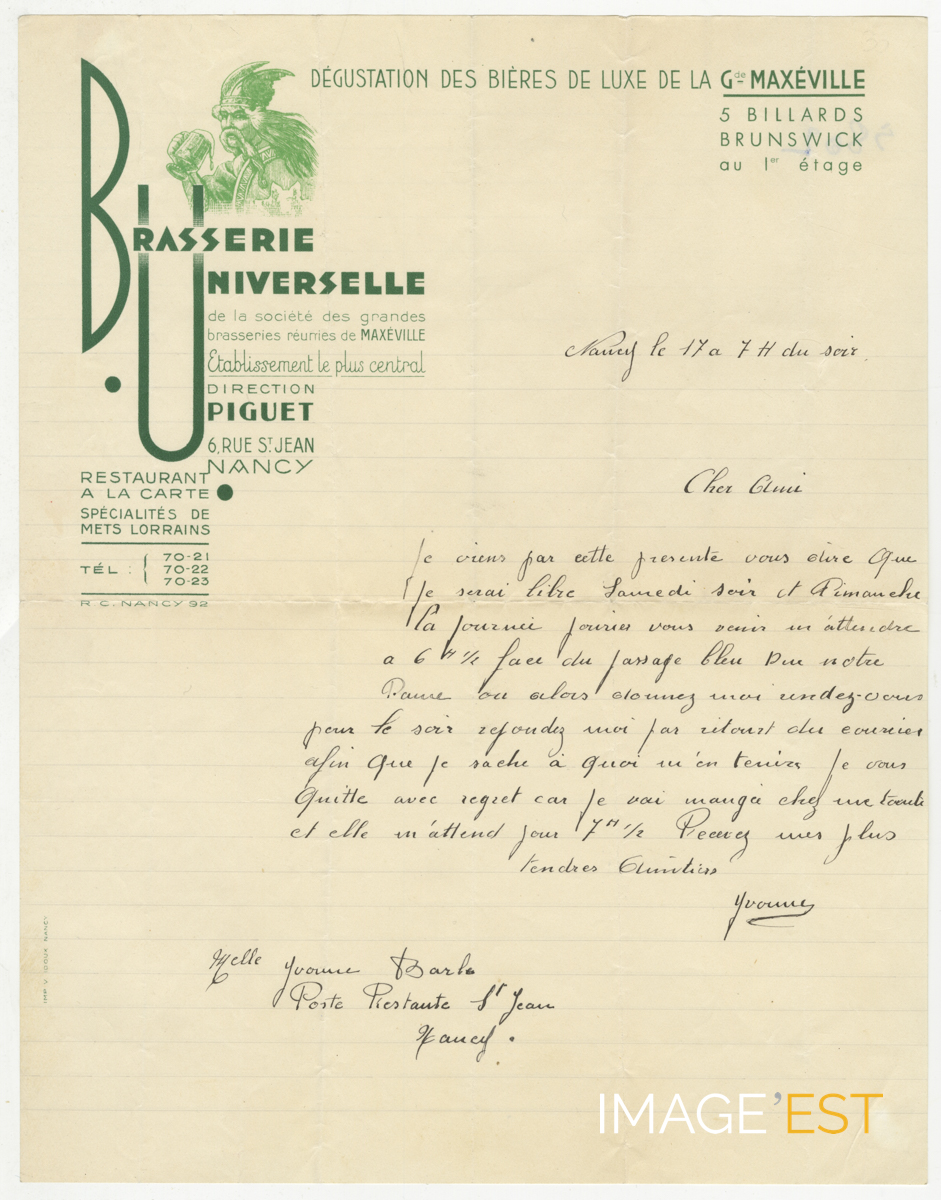 DÉGUSTATION DES BIÈRES DE LUXE DE LA Gde MAXÉVILLE
5 BILLARDS
BRUNSWICK
au 1er étage
BRASSERIE
UNIVERSELLE
de la société des grandes
brasseries réunies de MAXÉVILLE
Etablissement le plus central
DIRECTION
PIGUET
6, RUE ST JEAN
NANCY
RESTAURANT
A LA CARTE
SPÉCIALITÉS DE
METS LORRAINS
TÉL : { 70-21
70-22
70-23
R.C. NANCY 92
Nancy le 17 a 7 H du soir.
Cher Ami
Je viens par cette presente vous dire Que
Je serai libre Samedi soir et Dimanche
la journée vous venir m'attendre
a 6 H 1/2 face du passage bleu Rue notre
Dame ou alors donnez moi rendez-vous
pour le soir repondez moi par retourt du courrier
afin Que je sache à Quoi m'en tenire Je vous
Quitte avec regret car je vai mangé chez me tante
et elle m'attend pour 7 H 1/2 Recevez mes plus
tendres Amitiers
Yvonne
Melle Yvonne
Poste Restante St Jean
Nancy.
IMP. V. IDOUX NANCY
IMAGE'EST